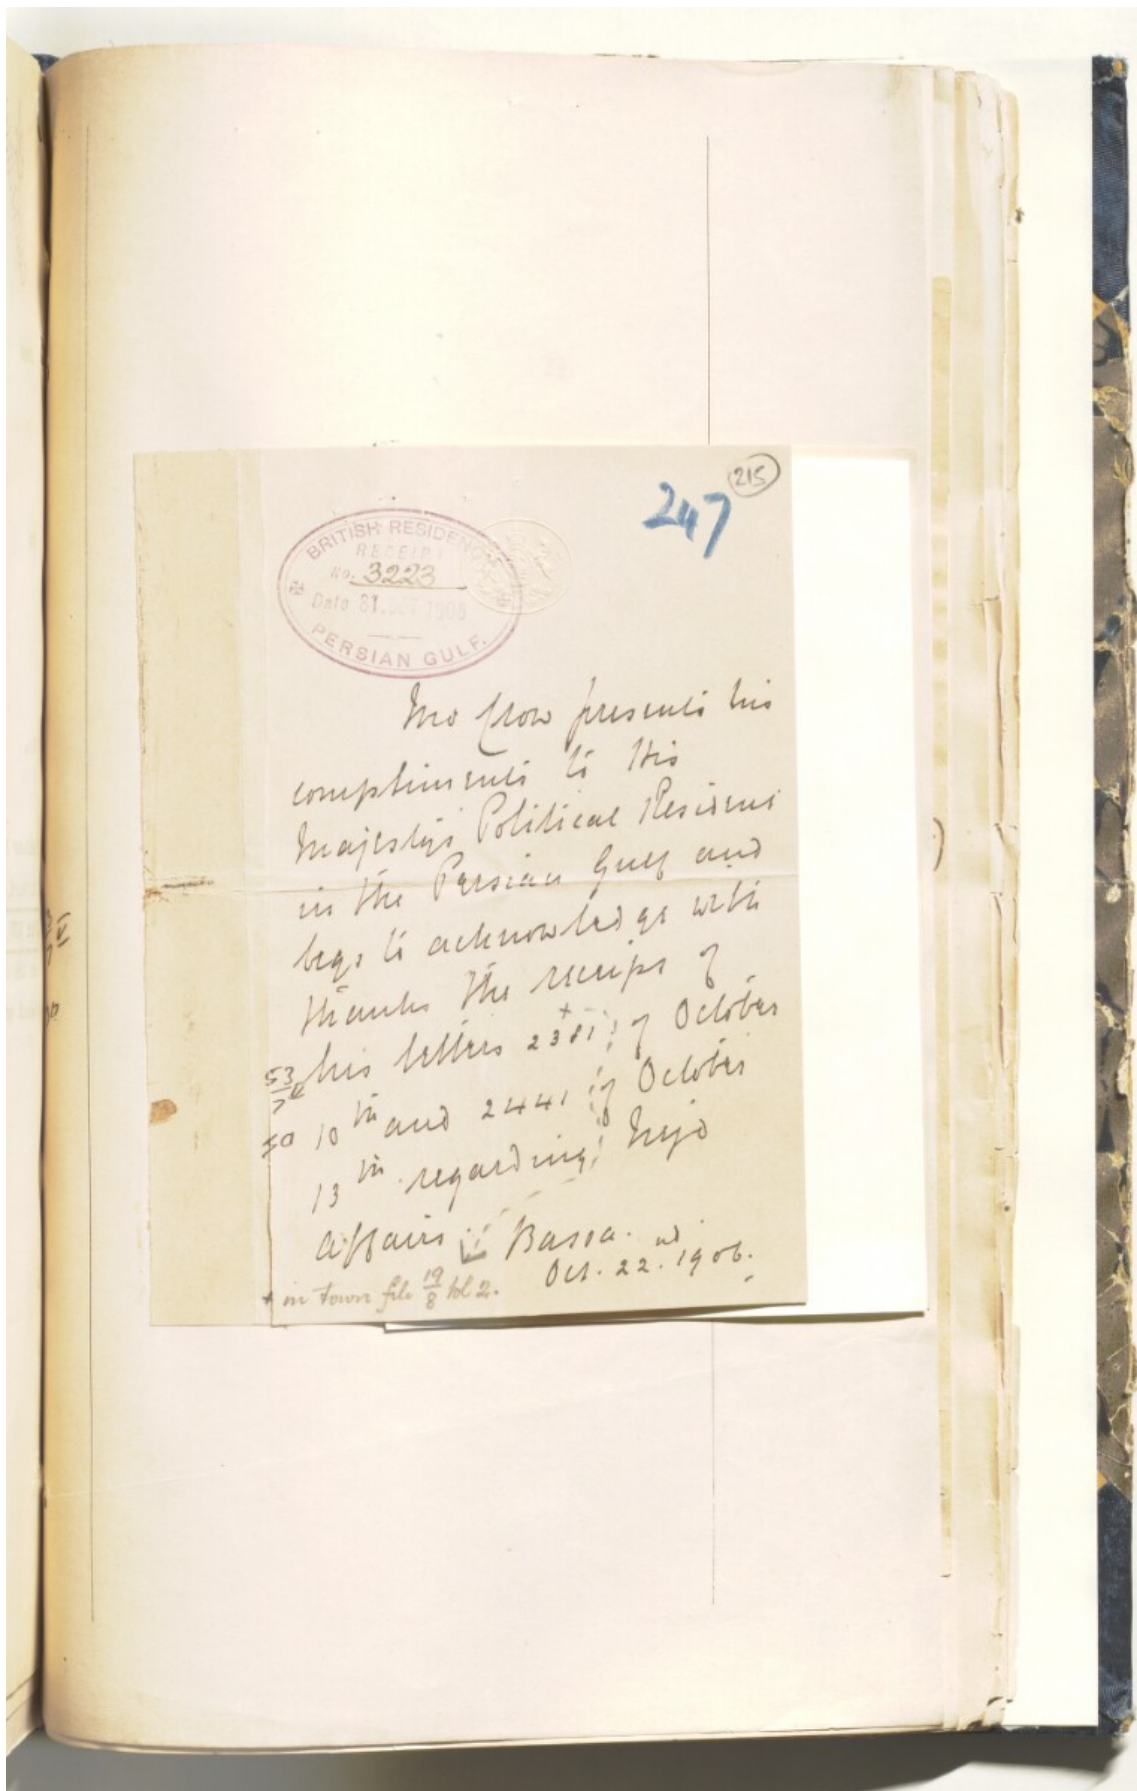 215
247
BRITISH RESIDENCY
RECEIPT
No. 3223
Date 31. OCT 1906
PERSIAN GULF.
Mr Crow presents his
compliments to His
Majesty's Political Resident
in the Persian Gulf and
begs to acknowledge with
thanks the receipt of
his letters 2381 + of October
10th and 2441 of October
13th regarding Nejd
Affairs
Basra.
Oct. 22nd 1906.
53
50
+ in Town file 19/8 Vol 2.